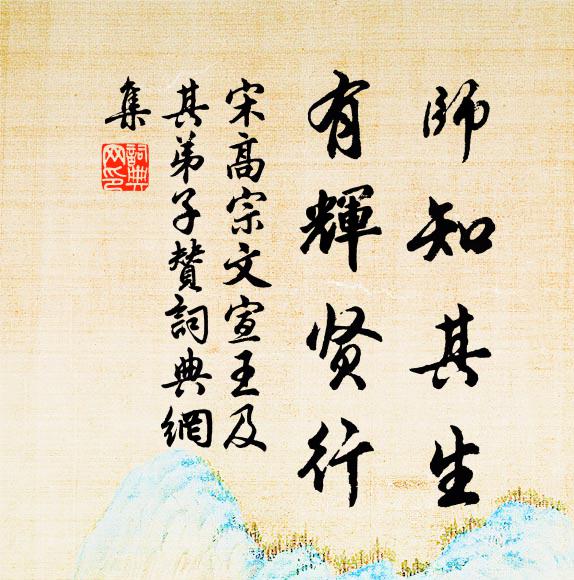 師知其生
有輝贤行
宋高宗文宣王及
其弟子贊詞典網
集
詞典
网印